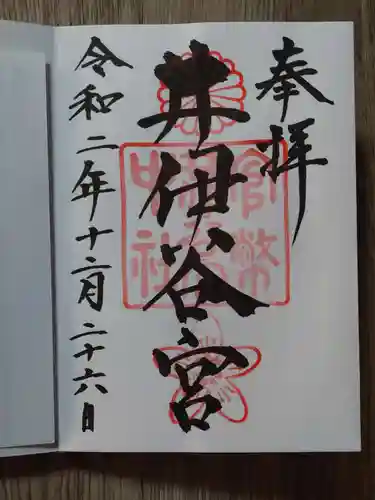 奉拝
井伊谷宮
令和二年十二月二十六日
官幣
中社